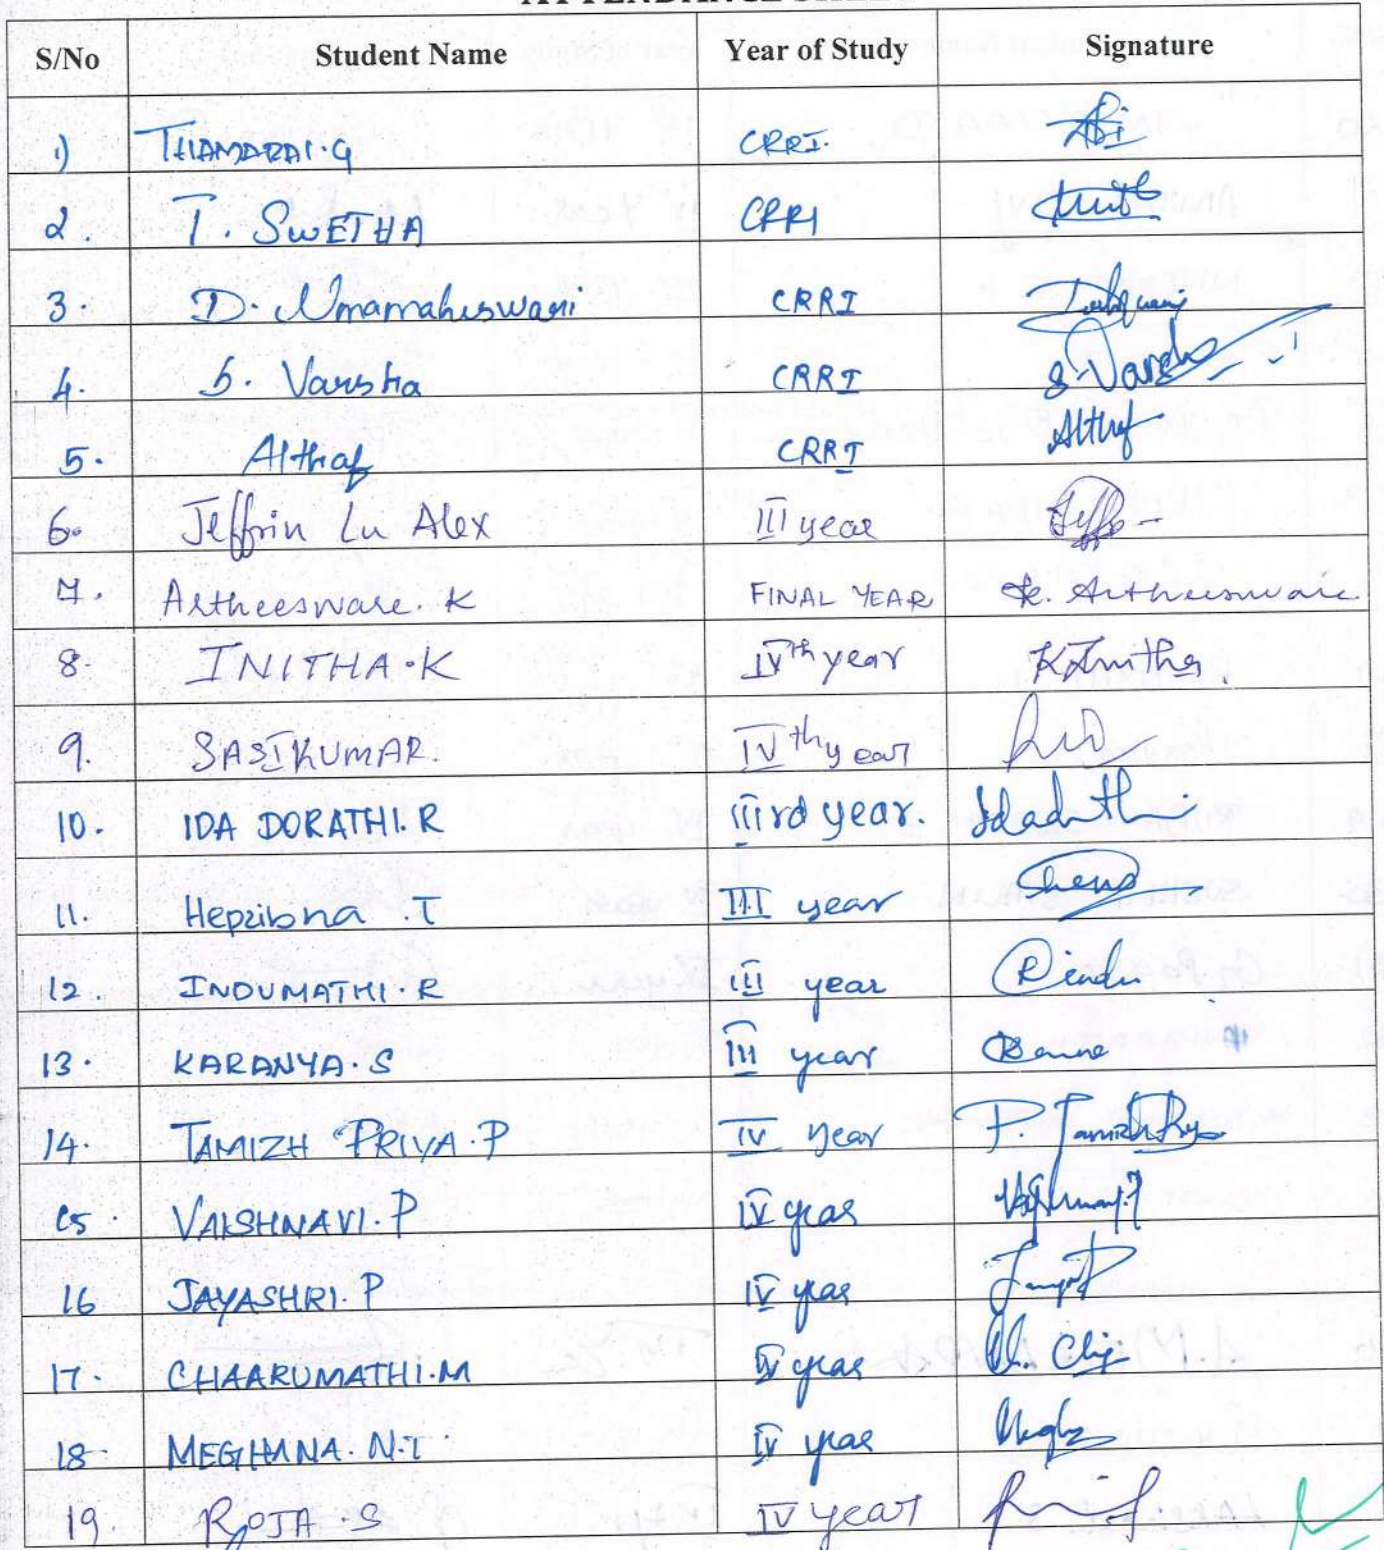 ATTENDANCE SHEET
S/No Student Name Year of Study Signature
1) THAMARAI.G CRRI.
2. T. SWETHA CRRI
3. D. Umamaheswari CRRI
4. S. Varsha CRRI S. Varsha
5. Althaf CRRI Althf
6. Jeffrin Lu Alex III year Jeff
7. Artheesware. K FINAL YEAR K. Artheesware
8. INITHA.K IVth year K.Initha.
9. SASIKUMAR. IVth year
10. IDA DORATHI.R IIIrd year.
11. Hepzibha T III year
12. INDUMATHI.R III year R Indu
13. KARANYA.S III year
14. TAMIZH PRIYA.P IV year P. TamizhPriya
15. VAISHNAVI.P IV year
16 JAYASHRI.P IV year
17. CHAARUMATHI.M IV year
18. MEGHANA.N.T IV year
19. ROJA.S IV year